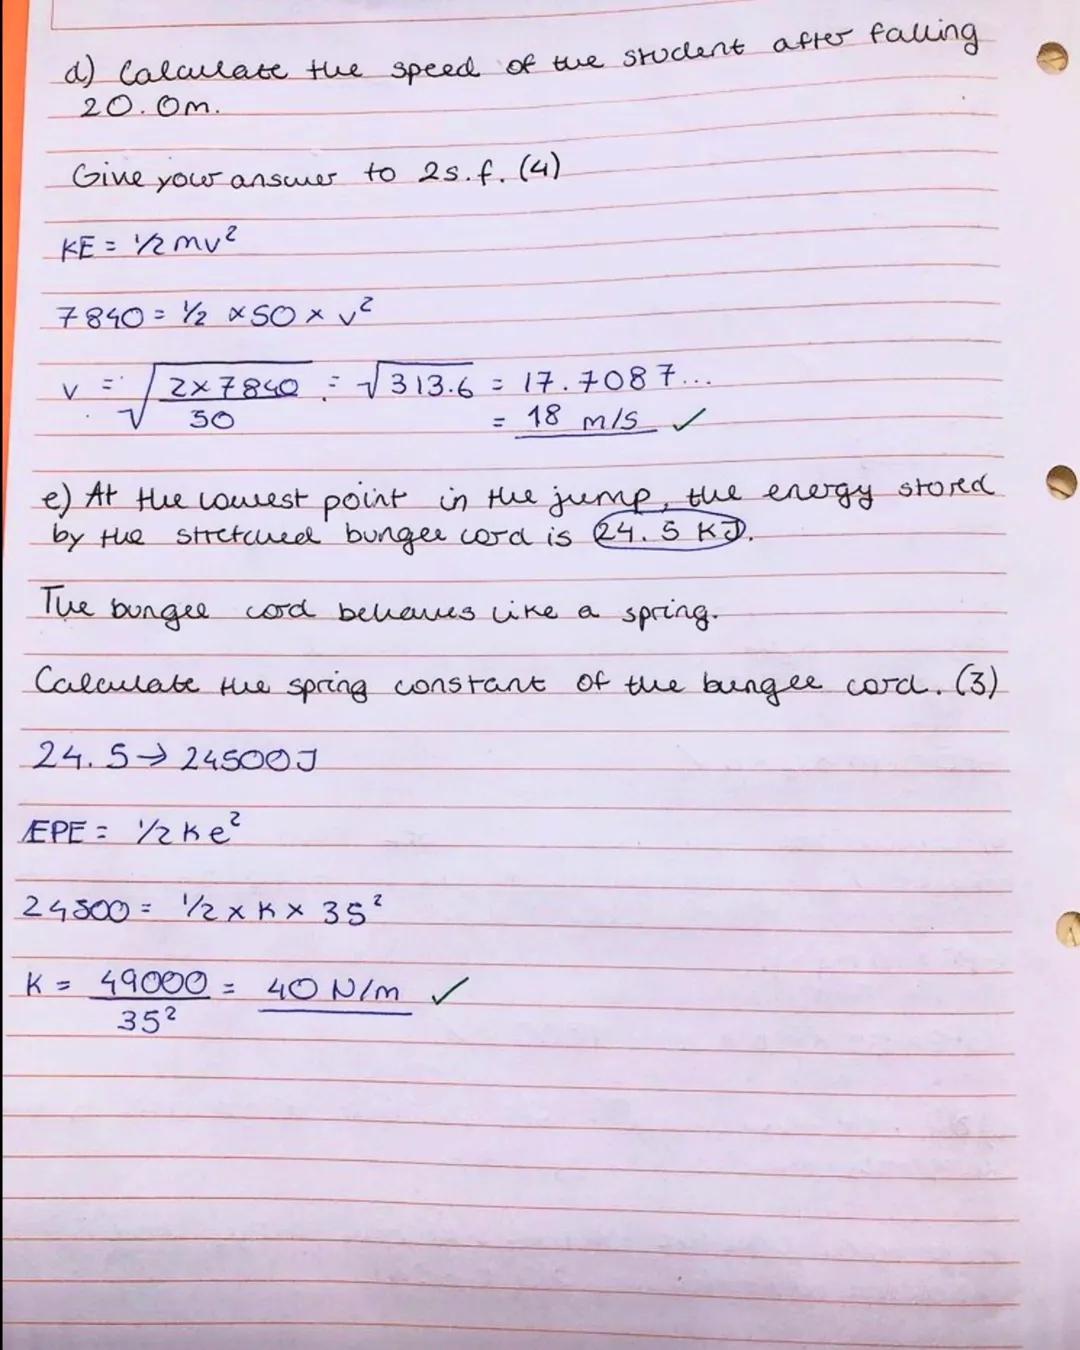 d) Calculate the speed of the student after falling
20.0m.
Give your answer to 2s.f. (4)
KE = 1/2 mv²
7840 = 1/2 × 50 × v²
v = √(2×7840/50) = √313.6 = 17.7087...
= 18 m/s ✓
e) At the lowest point in the jump, the energy stored
by the stretched bungee cord is 24.5 KJ.
The bungee cord behaves like a spring.
Calculate the spring constant of the bungee cord. (3)
24.5 → 24500J
EPE = 1/2 ke²
24500 = 1/2 × K × 35²
K = 49000/35² = 40 N/m ✓